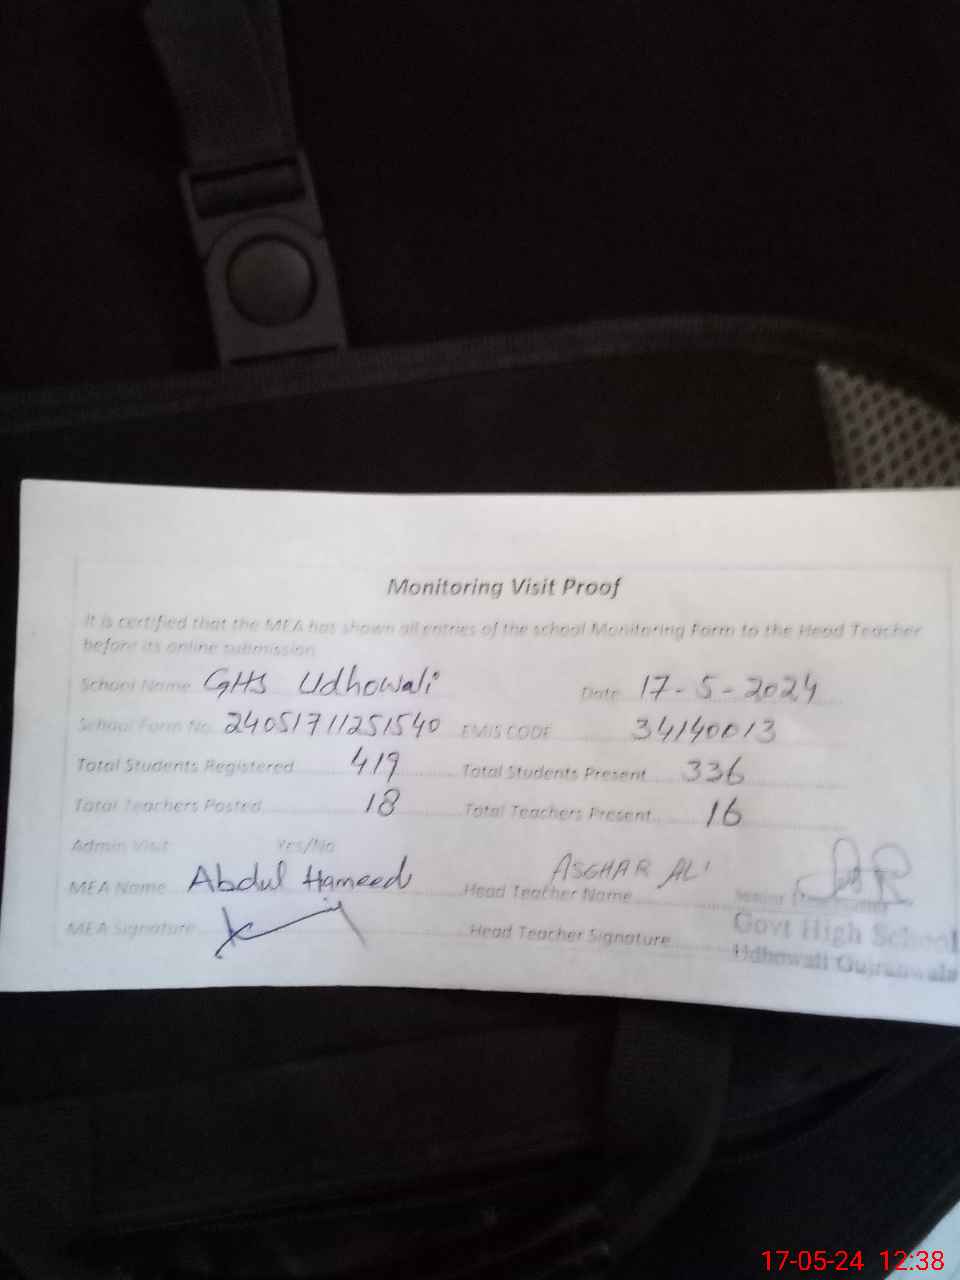 Monitoring Visit Proof
It is certified that the MEA has shown all entries of the school Monitoring Form to the Head Teacher
before its online submission
School Name GHS Udhowali Date 17-5-2024
School Form No. 24051711251540 EMIS CODE 34140013
Total Students Registered 419 Total Students Present 336
Total Teachers Posted 18 Total Teachers Present 16
Admin Visit Yes/No
MEA Name Abdul Hameed Head Teacher Name ASGHAR ALI
MEA Signature Head Teacher Signature
Govt High School
Udhowali Gujranwala
17-05-24 12:38